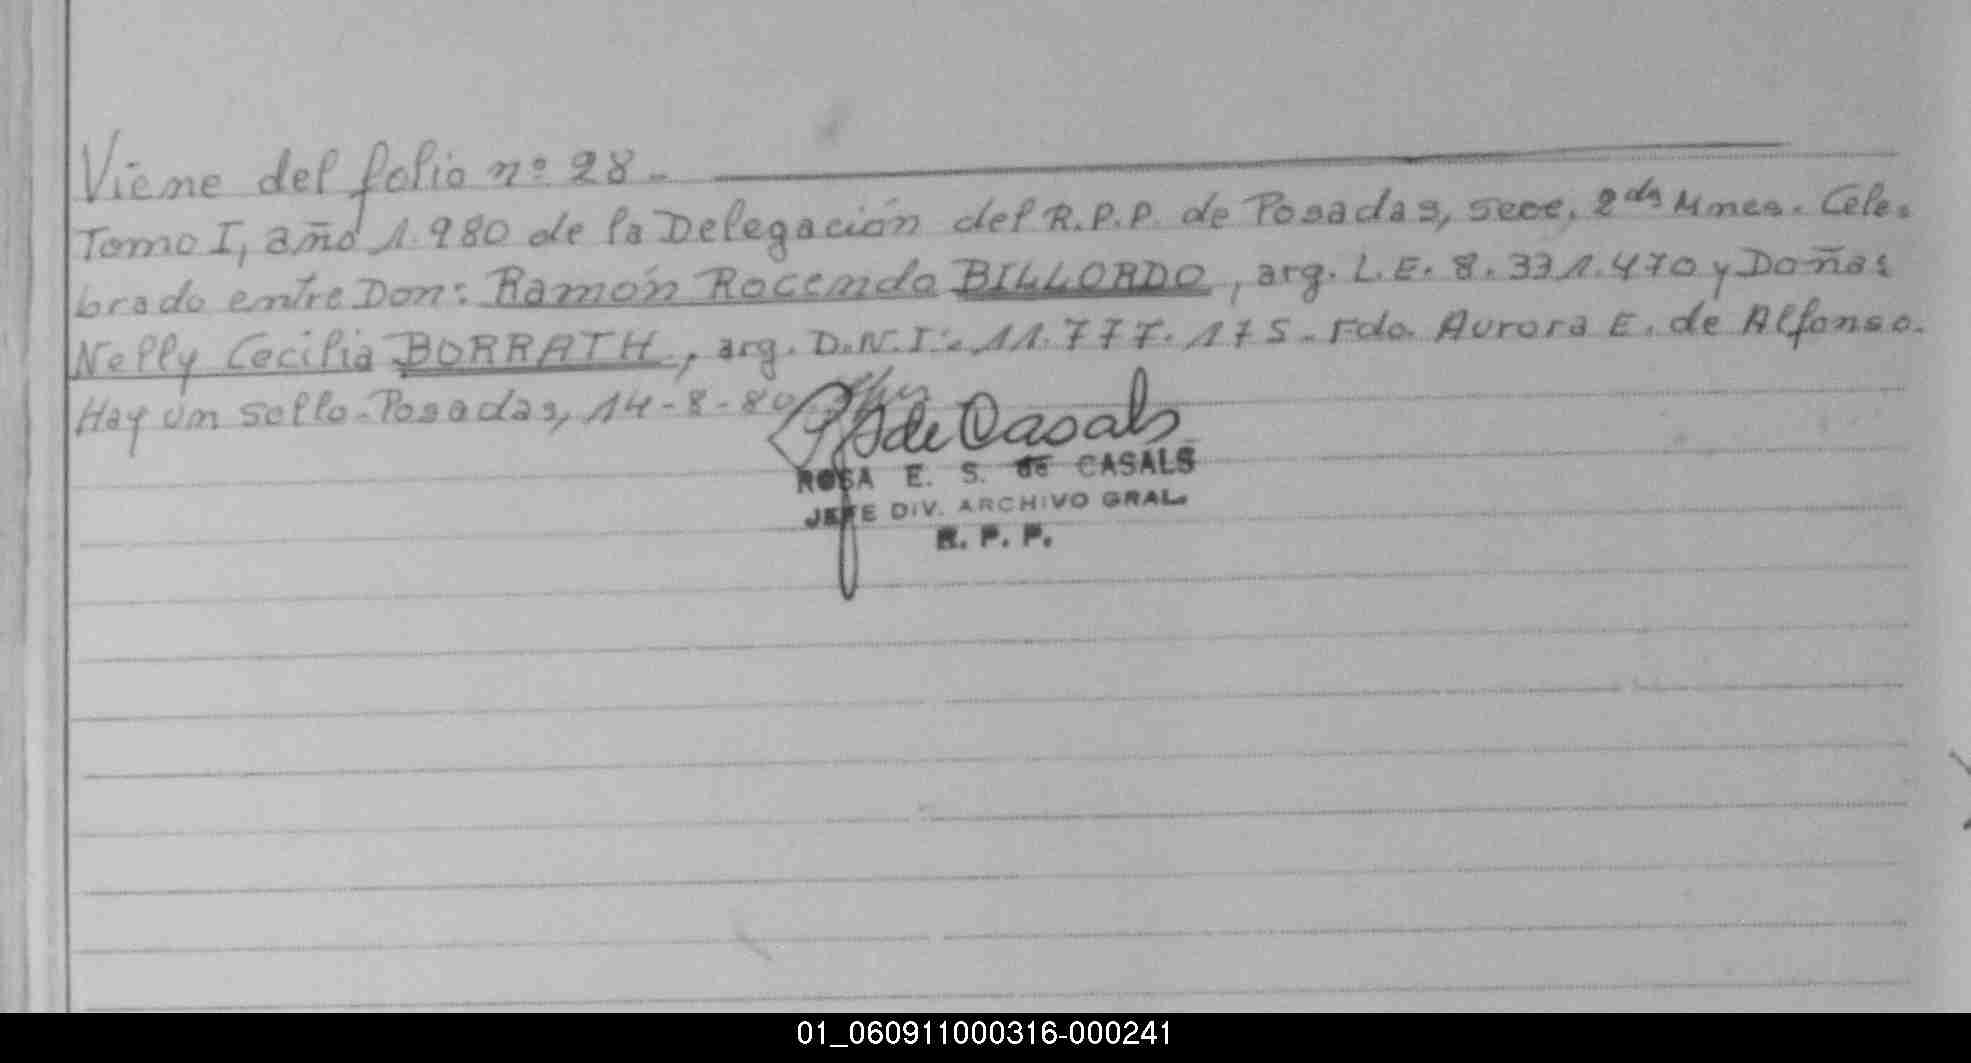 Viene del folio nº 28.
Tomo I, año 1.980 de la Delegación del R.P.P. de Posadas, secc. 2das Mnes. Cele-
brado entre Don: Ramón Rocendo BILLORDO, arg. L.E. 8.331.470 y Doña:
Nelly Cecilia BORRATH, arg. D.N.I:. 11.777.175. Fdo. Aurora E. de Alfonso.
Hay un sello. Posadas, 14-8-80
de Casals
ROSA E. S. de CASALS
JEFE DIV. ARCHIVO GRAL.
R. P. P.
01_060911000316-000241